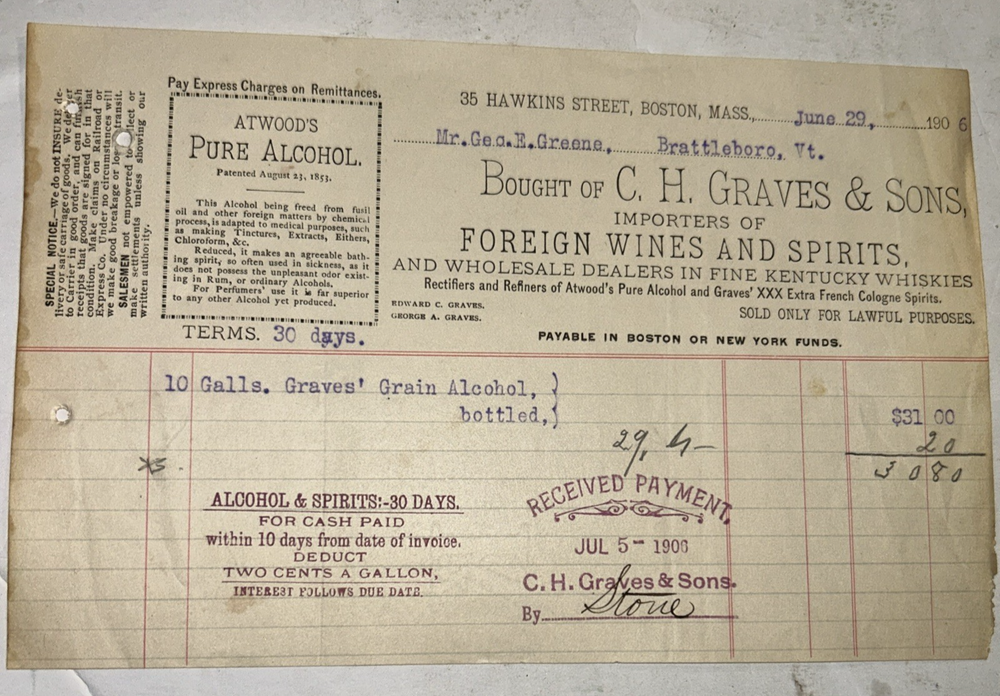 SPECIAL NOTICE.—We do not INSURE de-
livery or safe carriage of goods. We deliver
to Carrier in good order, and can furnish
receipts that goods are signed for in that
condition. Make claims on Railroad or
Express Co. Under no circumstances will
we make good breakage or loss in transit.
SALESMEN not empowered to collect or
make settlements unless showing our
written authority.
Pay Express Charges on Remittances.
ATWOOD'S
PURE ALCOHOL.
Patented August 23, 1853.
This Alcohol being freed from fusil
oil and other foreign matters by chemical
process, is adapted to medical purposes, such
as making Tinctures, Extracts, Eithers,
Chloroform, &c.
Reduced, it makes an agreeable bath-
ing spirit, so often used in sickness, as it
does not possess the unpleasant odor exist-
ing in Rum, or ordinary Alcohols.
For Perfumers' use it is far superior
to any other Alcohol yet produced.
TERMS. 30 days.
35 HAWKINS STREET, BOSTON, MASS., June 29, 1906
Mr. Geo.E.Greene, Brattleboro, Vt.
BOUGHT OF C. H. GRAVES & SONS,
IMPORTERS OF
FOREIGN WINES AND SPIRITS,
AND WHOLESALE DEALERS IN FINE KENTUCKY WHISKIES
Rectifiers and Refiners of Atwood's Pure Alcohol and Graves' XXX Extra French Cologne Spirits.
EDWARD C. GRAVES.
GEORGE A. GRAVES.
SOLD ONLY FOR LAWFUL PURPOSES.
PAYABLE IN BOSTON OR NEW YORK FUNDS.
10 Galls. Graves' Grain Alcohol, }
bottled,} $31 00
20
30 80
ALCOHOL & SPIRITS:-30 DAYS.
FOR CASH PAID
within 10 days from date of invoice.
DEDUCT
TWO CENTS A GALLON,
INTEREST FOLLOWS DUE DATE.
RECEIVED PAYMENT,
JUL 5- 1906
C. H. Graves & Sons.
By Stone